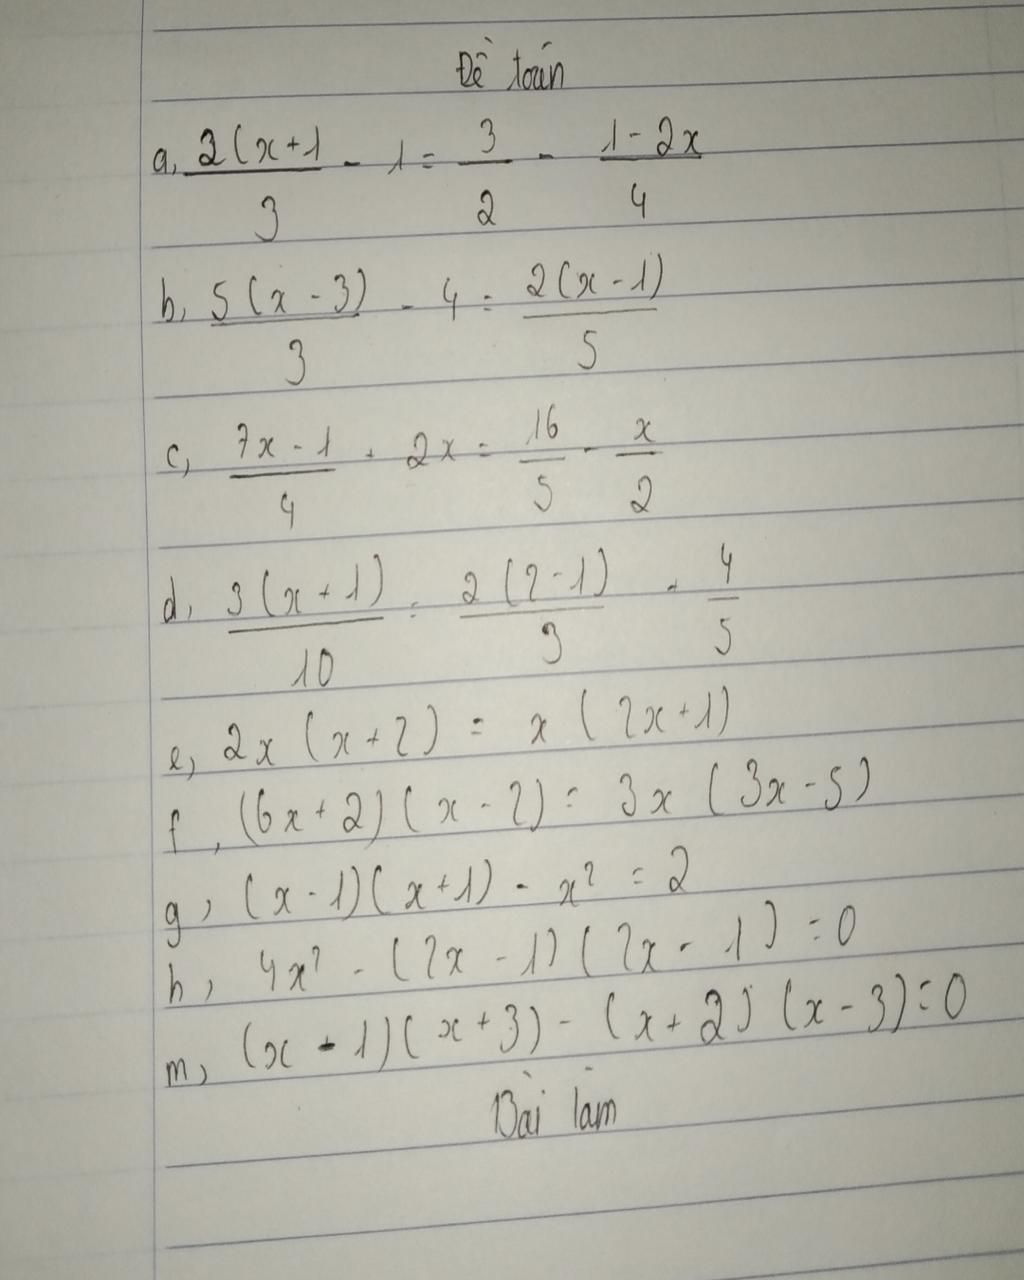 Đề toán
a, 2(x+1 / 3 - 1 = 3/2 - 1-2x / 4
b, 5(x-3) / 3 - 4 = 2(x-1) / 5
c, 7x-1 / 4 + 2x = 16/5 - x/2
d, 3(x+1) / 10 = 2(2-1) / 3 - 4/5
e, 2x (x+2) = x (2x+1)
f, (6x+2)(x-2) = 3x (3x-5)
g, (x-1)(x+1) - x² = 2
h, 4x² - (2x-1)(2x-1) = 0
m, (x-1)(x+3) - (x+2)(x-3) = 0
Bài làm